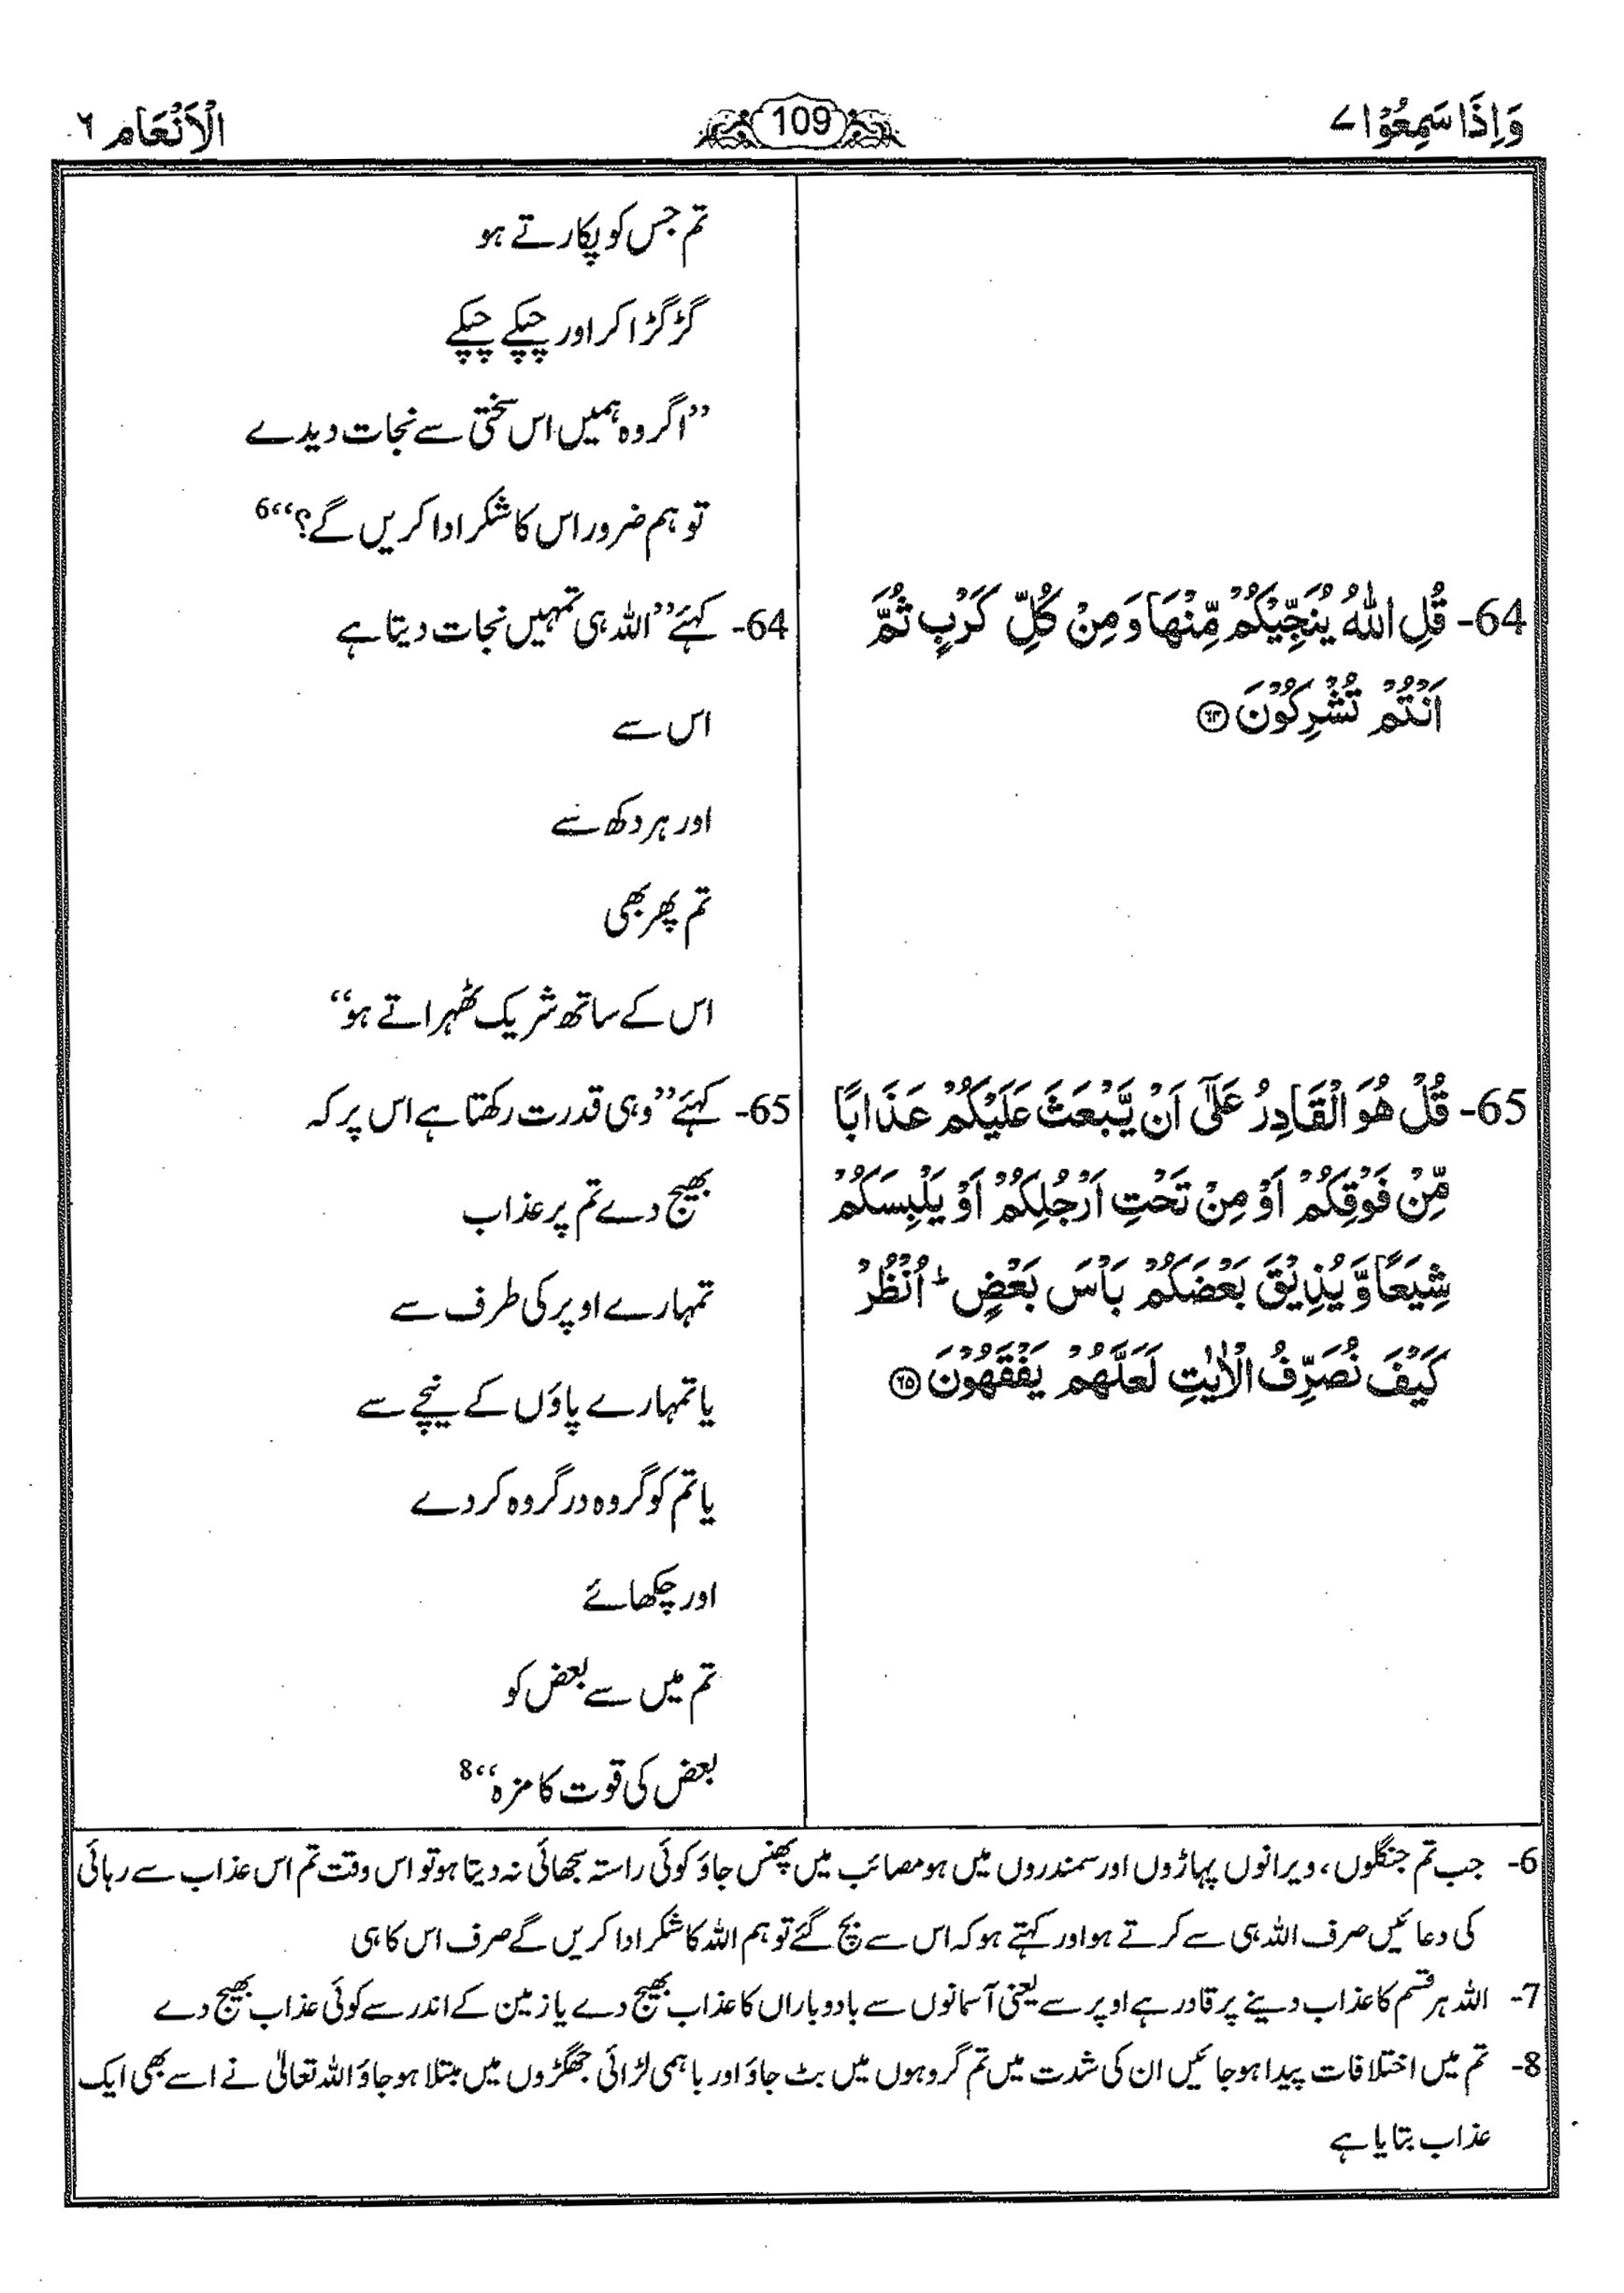 وَاِذَا سَمِعُوْا ے
109
الْاَنْعَام ٦
تم جس کو پکارتے ہو
گڑگڑا کر اور چپکے چپکے
’’اگر وہ ہمیں اس سختی سے نجات دیدے
تو ہم ضرور اس کا شکر ادا کریں گے؟‘‘6
64- قُلِ اللّٰهُ يُنَجِّيْكُمْ مِّنْهَا وَ مِنْ كُلِّ كَرْبٍ ثُمَّ
اَنْتُمْ تُشْرِكُوْنَ ﴿٦٤﴾
64- کہئے ’’اللہ ہی تمہیں نجات دیتا ہے
اس سے
اور ہر دکھ سے
تم پھر بھی
اس کے ساتھ شریک ٹھہراتے ہو‘‘
65- قُلْ هُوَ الْقَادِرُ عَلٰٓى اَنْ يَّبْعَثَ عَلَيْكُمْ عَذَابًا
مِّنْ فَوْقِكُمْ اَوْ مِنْ تَحْتِ اَرْجُلِكُمْ اَوْ يَلْبِسَكُمْ
شِيَعًا وَّ يُذِيْقَ بَعْضَكُمْ بَاْسَ بَعْضٍ ؕ اُنْظُرْ
كَيْفَ نُصَرِّفُ الْاٰيٰتِ لَعَلَّهُمْ يَفْقَهُوْنَ ﴿٦٥﴾
65- کہئے ’’وہی قدرت رکھتا ہے اس پر کہ
بھیج دے تم پر عذاب
تمہارے اوپر کی طرف سے
یا تمہارے پاؤں کے نیچے سے
یا تم کو گروہ در گروہ کر دے
اور چکھائے
تم میں سے بعض کو
بعض کی قوت کا مزہ‘‘8
6- جب تم جنگلوں، ویرانوں پہاڑوں اور سمندروں میں ہو مصائب میں پھنس جاؤ کوئی راستہ سجھائی نہ دیتا ہو تو اس وقت تم اس عذاب سے رہائی
کی دعائیں صرف اللہ ہی سے کرتے ہو اور کہتے ہو کہ اس سے بچ گئے تو ہم اللہ کا شکر ادا کریں گے صرف اس کا ہی
7- اللہ ہر قسم کا عذاب دینے پر قادر ہے اوپر سے یعنی آسمانوں سے بادوباراں کا عذاب بھیج دے یا زمین کے اندر سے کوئی عذاب بھیج دے
8- تم میں اختلافات پیدا ہو جائیں ان کی شدت میں تم گروہوں میں بٹ جاؤ اور باہمی لڑائی جھگڑوں میں مبتلا ہو جاؤ اللہ تعالیٰ نے اسے بھی ایک
عذاب بتایا ہے